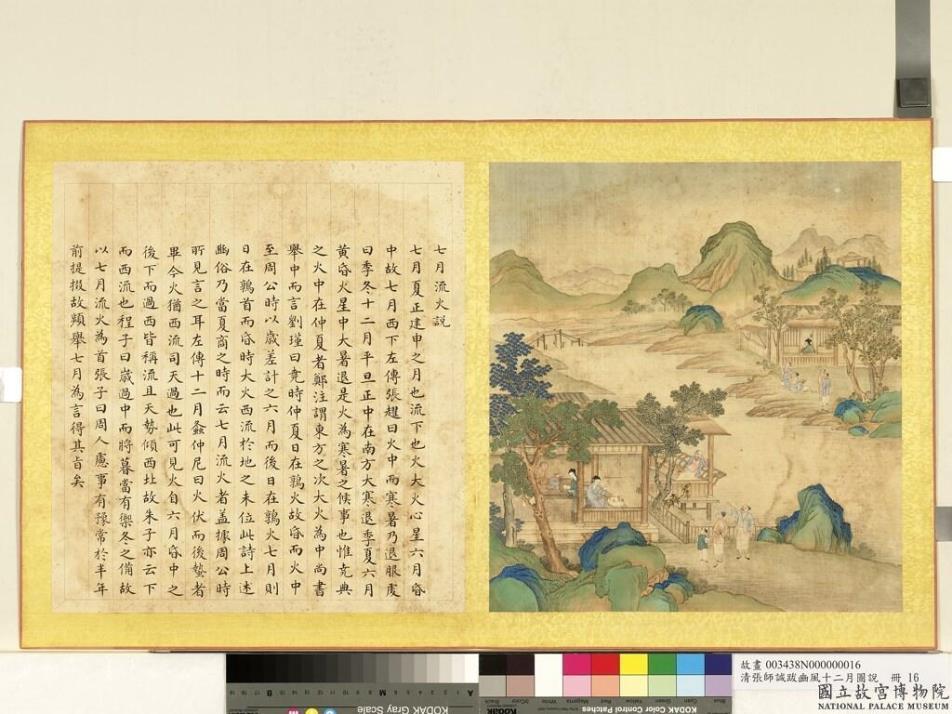 七月流火説
七月夏正建申之月也流下也火大火心星六月昏
中故七月西下左傳張趯曰火中而寒暑乃退服虔
曰季冬十二月平旦正中在南方大寒退季夏六月
黃昏火星中大暑退是火為寒暑之候事也惟堯典
之火中在仲夏者鄭注謂東方之次大火為中尚書
舉中而言劉瑾曰堯時仲夏日在鶉火故昏而火中
至周公時以歲差計之六月而後日在鶉火七月則
日在鶉首而昏時大火西流於地之未位此詩上述
豳俗乃當夏商之時而云七月流火者蓋據周公時
所見言之耳左傳十二月螽仲尼曰火伏而後蟄者
畢今火猶西流司天過也此可見火自六月昏中之
後下而過西皆稱流且天勢傾西北故朱子亦云下
而西流也程子曰歲過中而將暮當有禦冬之備故
以七月流火為首張子曰周人慮事有豫常於半年
前提掇故類舉七月為言得其旨矣
KODAK Gray Scale
Kodak Color Control Patches
故畫 003438N000000016
清張師誠跋豳風十二月圖說 冊 16
國立故宮博物院
NATIONAL PALACE MUSEUM